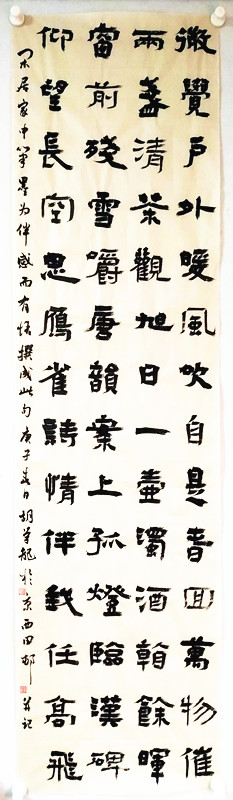 微覺戶外暖風吹自是春回萬物催
兩盞清茶觀旭日一壺濁酒翰餘暉
窗前殘雪嚼唐韻案上孤燈臨漢碑
仰望長空思鴈雀詩情伴我任高飛
閑居家中筆墨為伴感而有悟撰成此句庚子春日胡龍於京西田邨並記